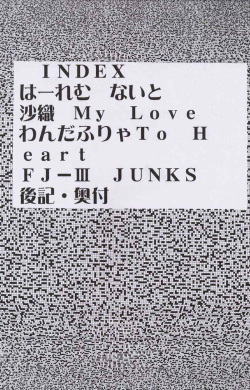 INDEX
はーれむ ないと
沙織 My Love
わんだふりゃTo H
eart
FJーⅢ JUNKS
後記・奥付